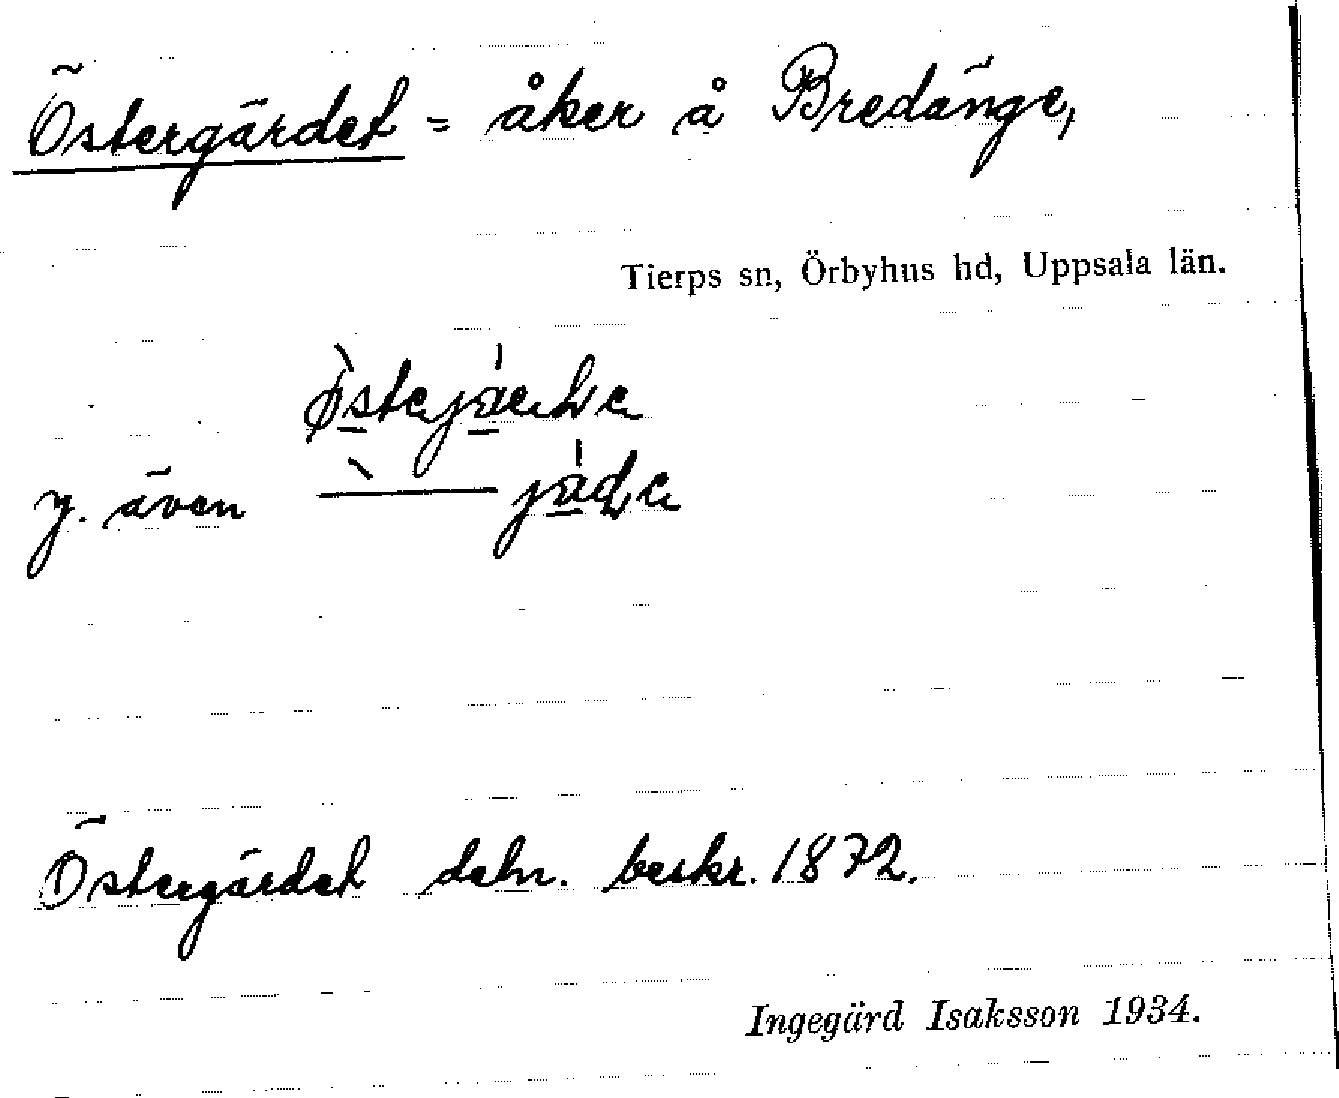 Östergärdet = åker å Bredänge,
Tierps sn, Örbyhus hd, Uppsala län.
y. även
Östergärdet deln. beskr. 1872.
Ingegärd Isaksson 1934.